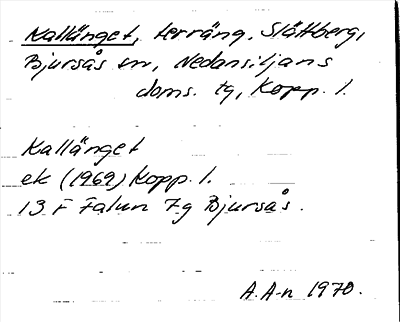 Kallänget, terräng, Slåttberg,
Bjursås sn, Nedansiljans
doms. tg, Kopp. l.
Kallänget
ek (1969) Kopp. l.
13 F Falun 7g Bjursås.
A. A-n 1970.